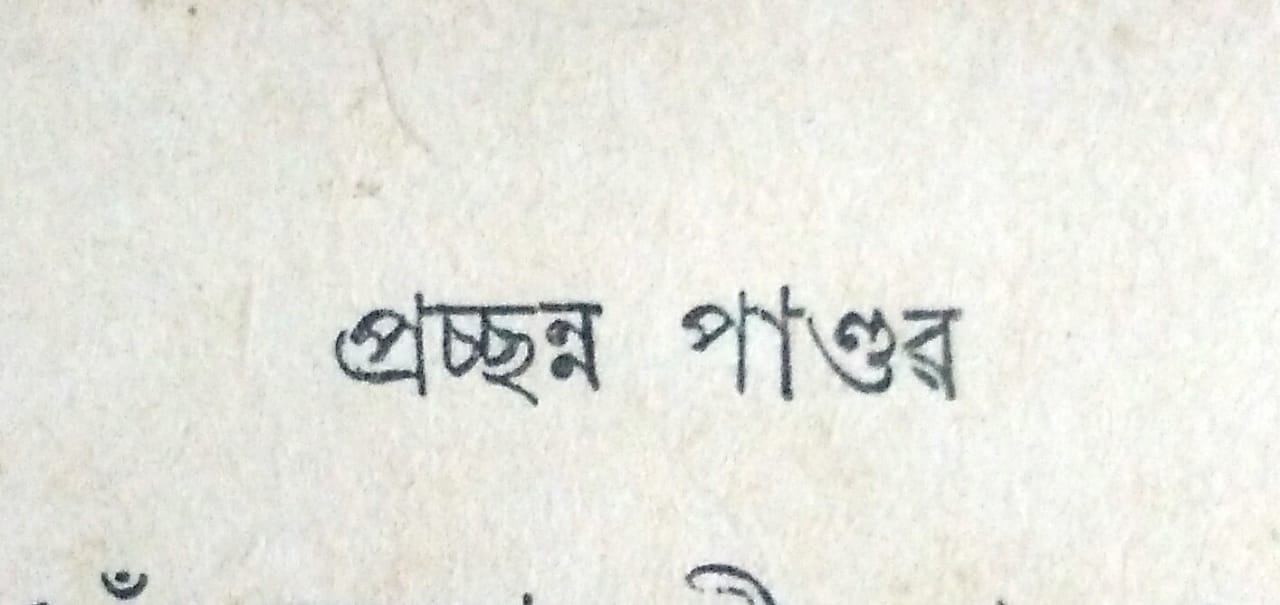 প্রচ্ছন্ন পাণ্ডৱ